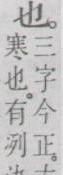 也。
三字今正。
寒也。有冽